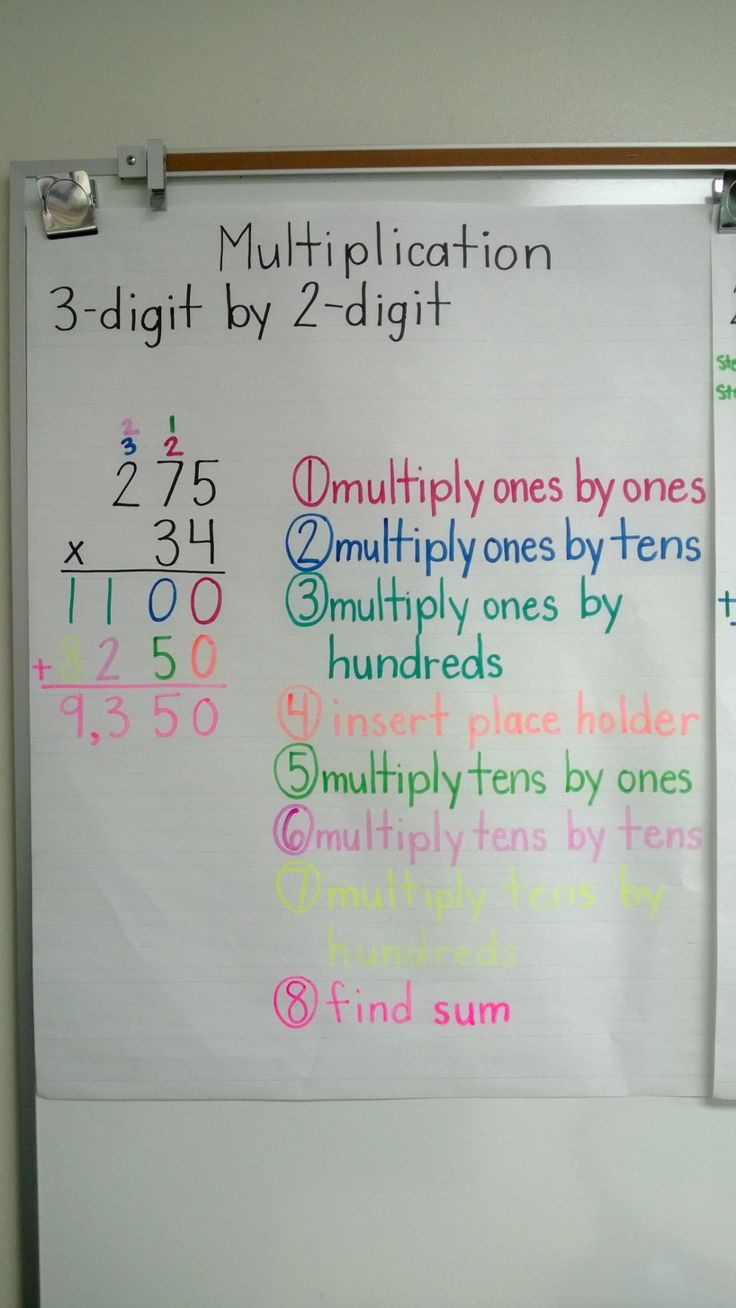 Multiplication
3-digit by 2-digit
2 1
3 2
275
x 34
1100
+8250
9,350
①multiply ones by ones
②multiply ones by tens
③multiply ones by
hundreds
④insert place holder
⑤multiply tens by ones
⑥multiply tens by tens
⑦multiply tens by
hundreds
⑧find sum
Ste
Ste
+